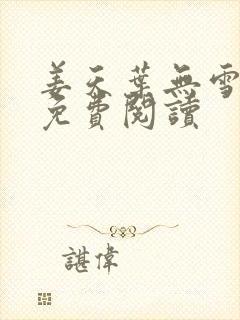 姜天葉無雪
免費閱讀
諶偉